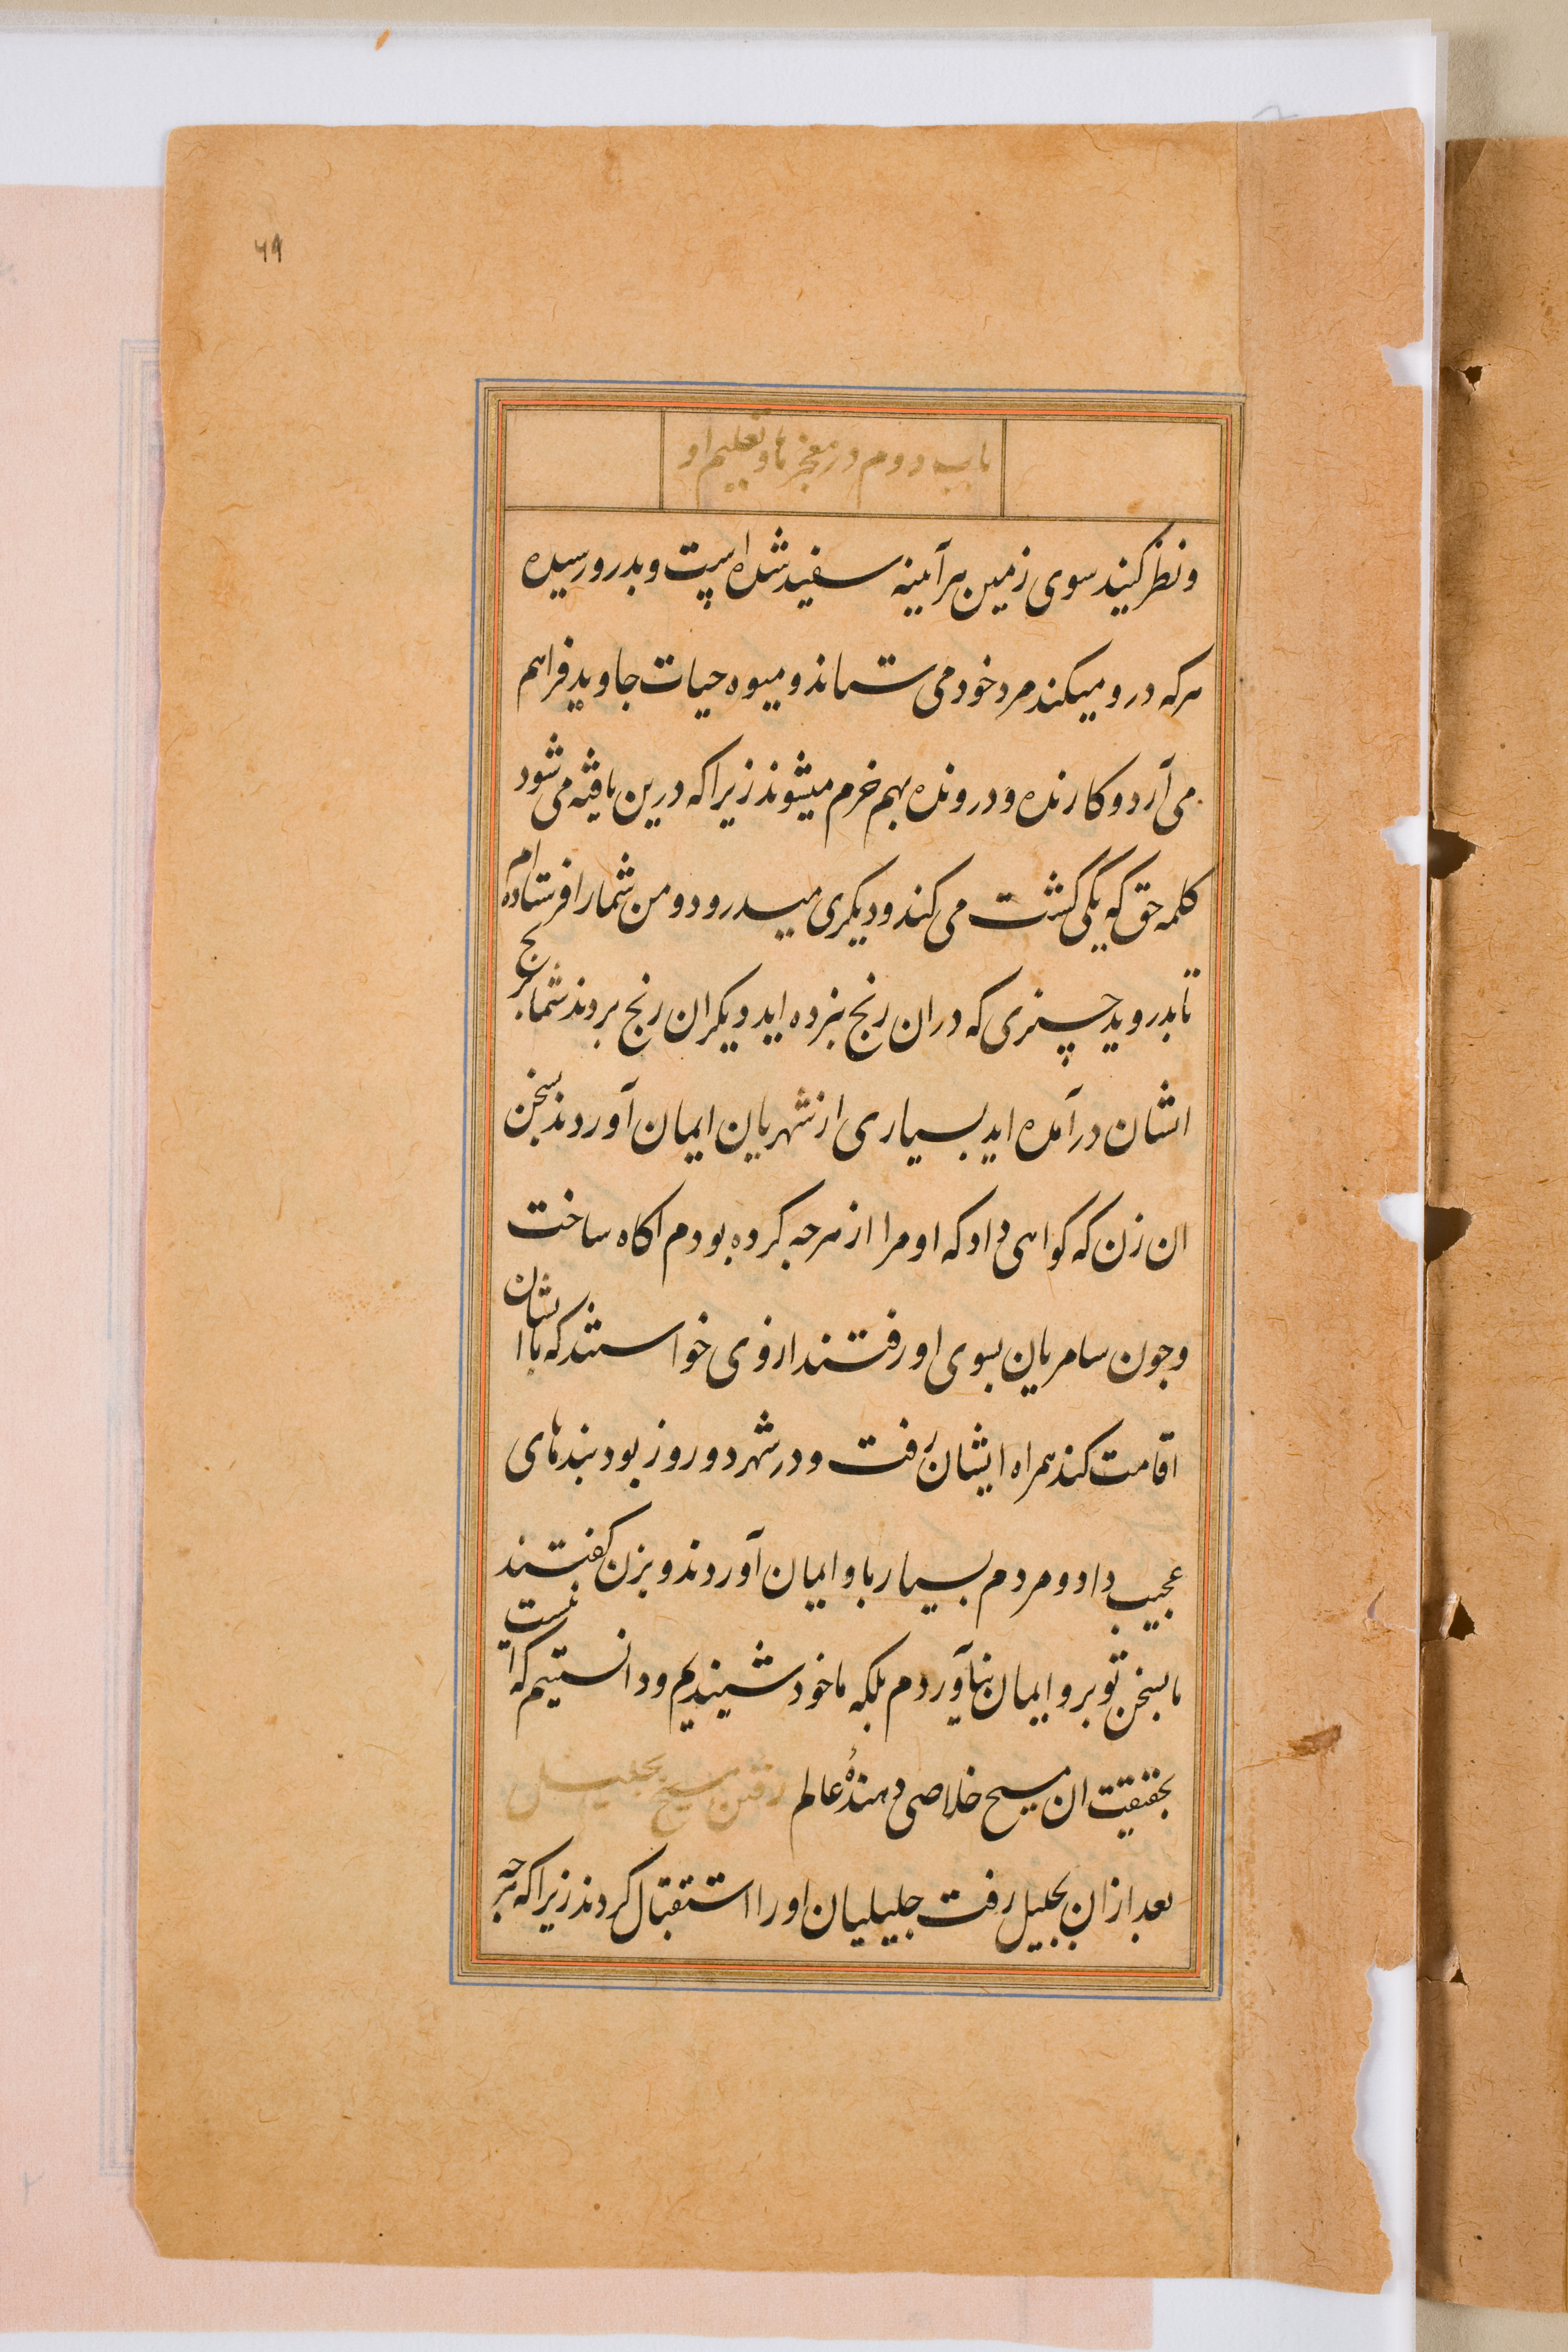 ۶۹
باب دوم در معجزها و تعلیم او
و نظر کنید سوی زمین هرآینه سفید شده است و بدرو رسیده
هرکه درو میکند مرد خود می ستاند و میوه حیات جاوید فراهم
می آرد و کارنده و درونده بهم خرم میشوند زیرا که درین یافته می شود
کلمه حق که یکی کشت می کند و دیکری میدرود و من شما را فرستاده ام
تا بدروید چیزی که در ان رنج نبرده اید دیکران رنج بردند شما برنج
ایشان درآمده اید بسیاری از شهریان ایمان آوردند بسخن
ان زن که کواهی داد که او مرا از هرچه کرده بودم اکاه ساخت
و چون سامریان بسوی او رفتند ازوی خواستند که با ایشان
اقامت کند همراه ایشان رفت و در شهر دو روز بود پندهای
عجیب داد و مردم بسیار باو ایمان آوردند و بزن کفتند
ما بسخن تو برو ایمان نیاوردم بلکه ما خود شنیدیم و دانستیم که اینست
بحقیقت ان مسیح خلاصی دهندهٔ عالم رفتن مسیح بجلیل
بعد ازان بجلیل رفت جلیلیان او را استقبال کردند زیرا که هرچه